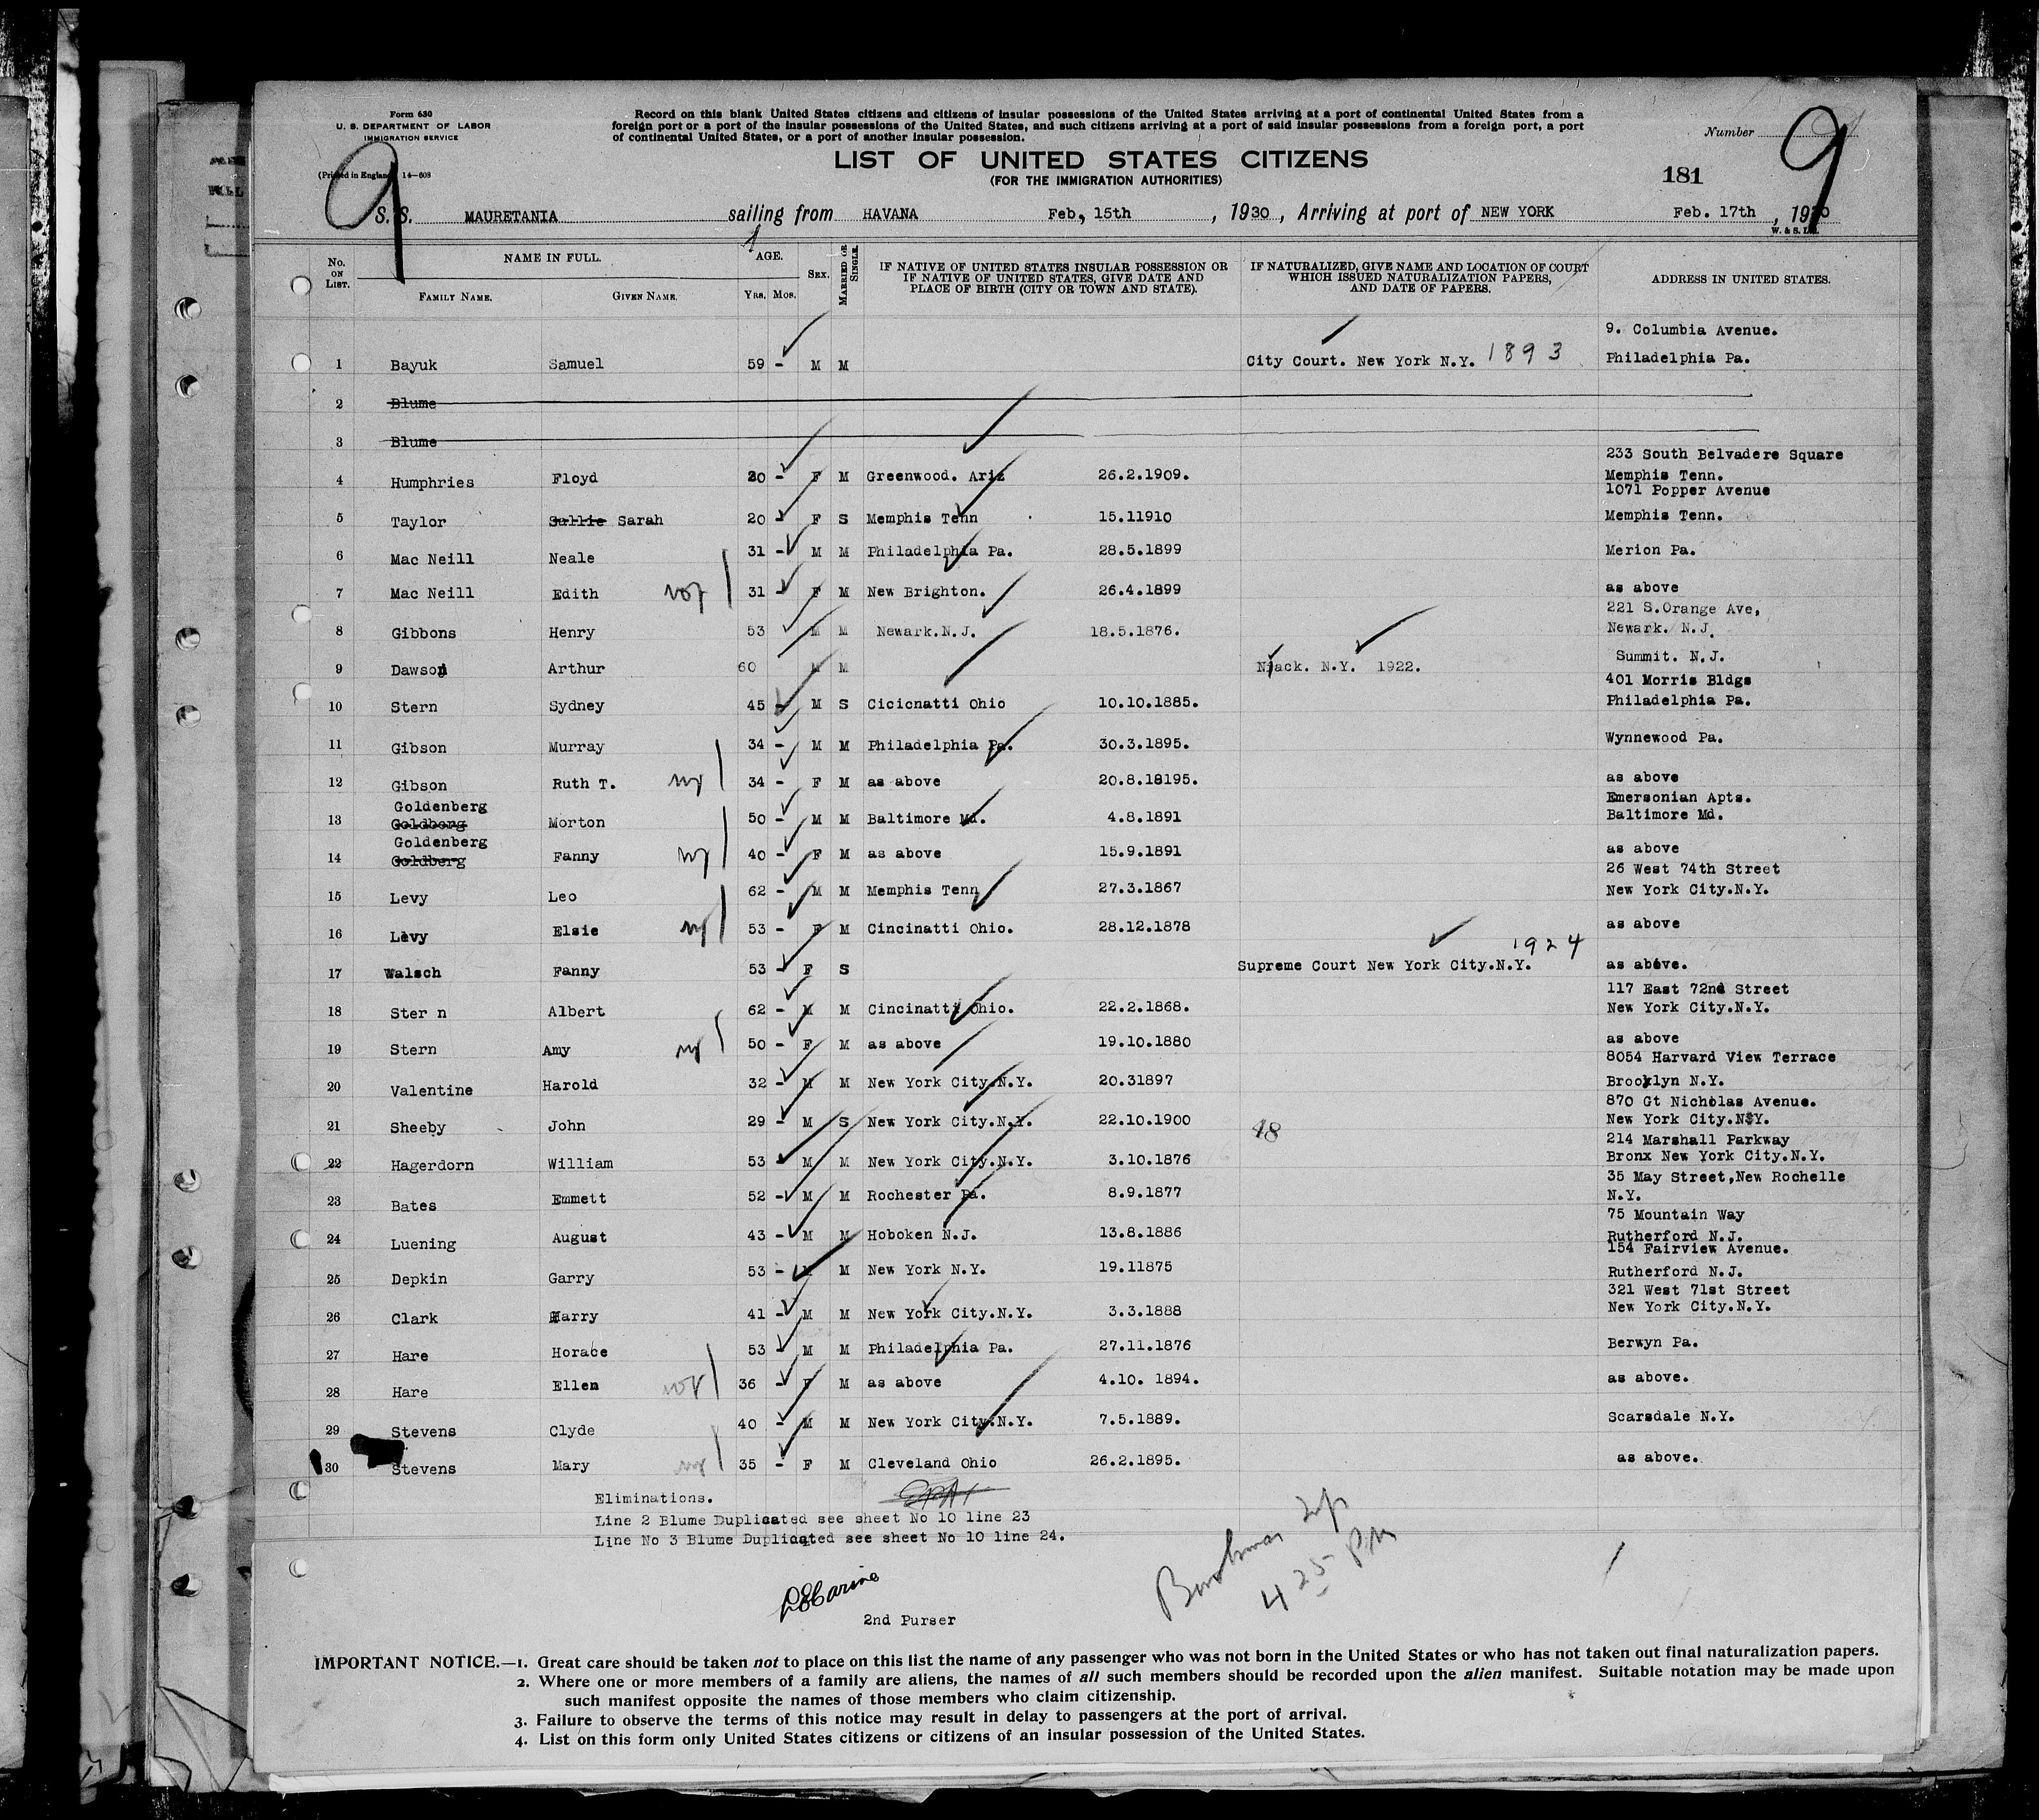 Form 630
U. S. DEPARTMENT OF LABOR
IMMIGRATION SERVICE
(Printed in England) 14-608
Record on this blank United States citizens and citizens of insular possessions of the United States arriving at a port of continental United States from a
foreign port or a port of the insular possessions of the United States, and such citizens arriving at a port of said insular possessions from a foreign port, a port
of continental United States, or a port of another insular possession.
Number
9 9
LIST OF UNITED STATES CITIZENS
(FOR THE IMMIGRATION AUTHORITIES)
181
S. S. MAURETANIA sailing from HAVANA Feb, 15th, 1930, Arriving at port of NEW YORK Feb. 17th, 1930
W. & S. Ltd.
No. ON LIST. NAME IN FULL. FAMILY NAME. GIVEN NAME. AGE. Yrs. Mos. SEX. MARRIED OR SINGLE. IF NATIVE OF UNITED STATES INSULAR POSSESSION OR IF NATIVE OF UNITED STATES, GIVE DATE AND PLACE OF BIRTH (CITY OR TOWN AND STATE). IF NATURALIZED, GIVE NAME AND LOCATION OF COURT WHICH ISSUED NATURALIZATION PAPERS, AND DATE OF PAPERS. ADDRESS IN UNITED STATES.
9. Columbia Avenue.
1 Bayuk Samuel 59 - M M City Court. New York N.Y. 1893 Philadelphia Pa.
2 Blume
3 Blume
233 South Belvadere Square
4 Humphries Floyd 20 - F M Greenwood. Ariz 26.2.1909. Memphis Tenn.
1071 Popper Avenue
5 Taylor Sallie Sarah 20 - F S Memphis Tenn 15.11910 Memphis Tenn.
6 Mac Neill Neale 31 - M M Philadelphia Pa. 28.5.1899 Merion Pa.
7 Mac Neill Edith 31 - F M New Brighton. 26.4.1899 as above
221 S.Orange Ave,
8 Gibbons Henry 53 M M Newark.N.J. 18.5.1876. Newark. N.J.
9 Dawson Arthur 60 M M Nyack. N.Y. 1922. Summit. N.J.
401 Morris Bldgs
10 Stern Sydney 45 - M S Cicicnatti Ohio 10.10.1885. Philadelphia Pa.
11 Gibson Murray 34 - M M Philadelphia Pa. 30.3.1895. Wynnewood Pa.
12 Gibson Ruth T. 34 - F M as above 20.8.18195. as above
Goldenberg Emersonian Apts.
13 Goldberg Morton 50 - M M Baltimore Md. 4.8.1891 Baltimore Md.
Goldenberg
14 Goldberg Fanny 40 - F M as above 15.9.1891 as above
26 West 74th Street
15 Levy Leo 62 - M M Memphis Tenn 27.3.1867 New York City.N.Y.
16 Levy Elsie 53 - F M Cincinatti Ohio. 28.12.1878 as above
17 Walsch Fanny 53 - F S Supreme Court New York City.N.Y. 1924 as above.
117 East 72nd Street
18 Ster n Albert 62 - M M Cincinatti Ohio. 22.2.1868. New York City.N.Y.
19 Stern Amy 50 - F M as above 19.10.1880 as above
8054 Harvard View Terrace
20 Valentine Harold 32 - M M New York City.N.Y. 20.31897 Brooklyn N.Y.
870 Gt Nicholas Avenue.
21 Sheeby John 29 - M S New York City.N.Y. 22.10.1900 48 New York City.N$Y.
214 Marshall Parkway
22 Hagerdorn William 53 - M M New York City.N.Y. 3.10.1876 Bronx New York City.N.Y.
35 May Street,New Rochelle
23 Bates Emmett 52 - M M Rochester Pa. 8.9.1877 N.Y.
75 Mountain Way
24 Luening August 43 - M M Hoboken N.J. 13.8.1886 Rutherford N.J.
154 Fairview Avenue.
25 Depkin Garry 53 - M M New York N.Y. 19.11875 Rutherford N.J.
321 West 71st Street
26 Clark Harry 41 - M M New York City.N.Y. 3.3.1888 New York City.N.Y.
27 Hare Horace 53 - M M Philadelphia Pa. 27.11.1876 Berwyn Pa.
28 Hare Ellen 36 - F M as above 4.10. 1894. as above.
29 Stevens Clyde 40 - M M New York City.N.Y. 7.5.1889. Scarsdale N.Y.
30 Stevens Mary 35 - F M Cleveland Ohio 26.2.1895. as above.
Eliminations.
Line 2 Blume Duplicated see sheet No 10 line 23
Line No 3 Blume Duplicated see sheet No 10 line 24.
4 25 PM
2nd Purser
IMPORTANT NOTICE.—1. Great care should be taken not to place on this list the name of any passenger who was not born in the United States or who has not taken out final naturalization papers.
2. Where one or more members of a family are aliens, the names of all such members should be recorded upon the alien manifest. Suitable notation may be made upon
such manifest opposite the names of those members who claim citizenship.
3. Failure to observe the terms of this notice may result in delay to passengers at the port of arrival.
4. List on this form only United States citizens or citizens of an insular possession of the United States.